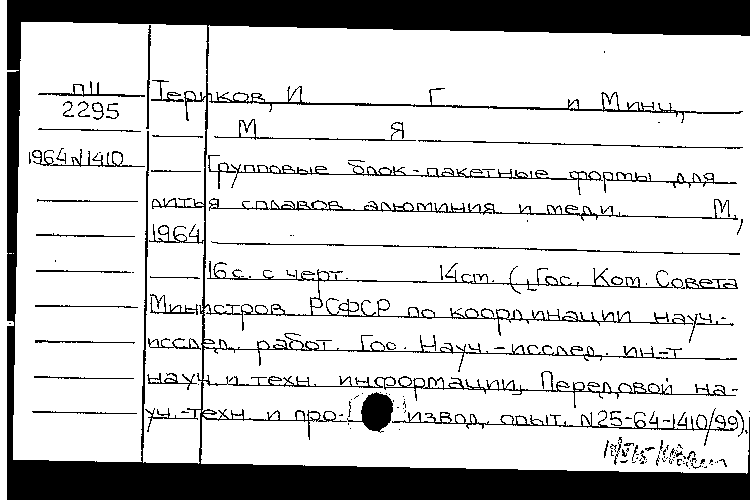 пII
2295
1964 N1410
Териков, И Г и Минц,
М Я
Групповые блок-пакетные формы для
литья сплавов алюминия и меди. М.,
1964
16 с. с черт. 14 см. (Гос. Ком. Совета
Министров РСФСР по координации науч.-
исслед. работ. Гос. Науч.-исслед. ин-т
науч. и техн. информации. Передовой на-
уч.-техн. и про- извод. опыт. N25-64-1410/99).